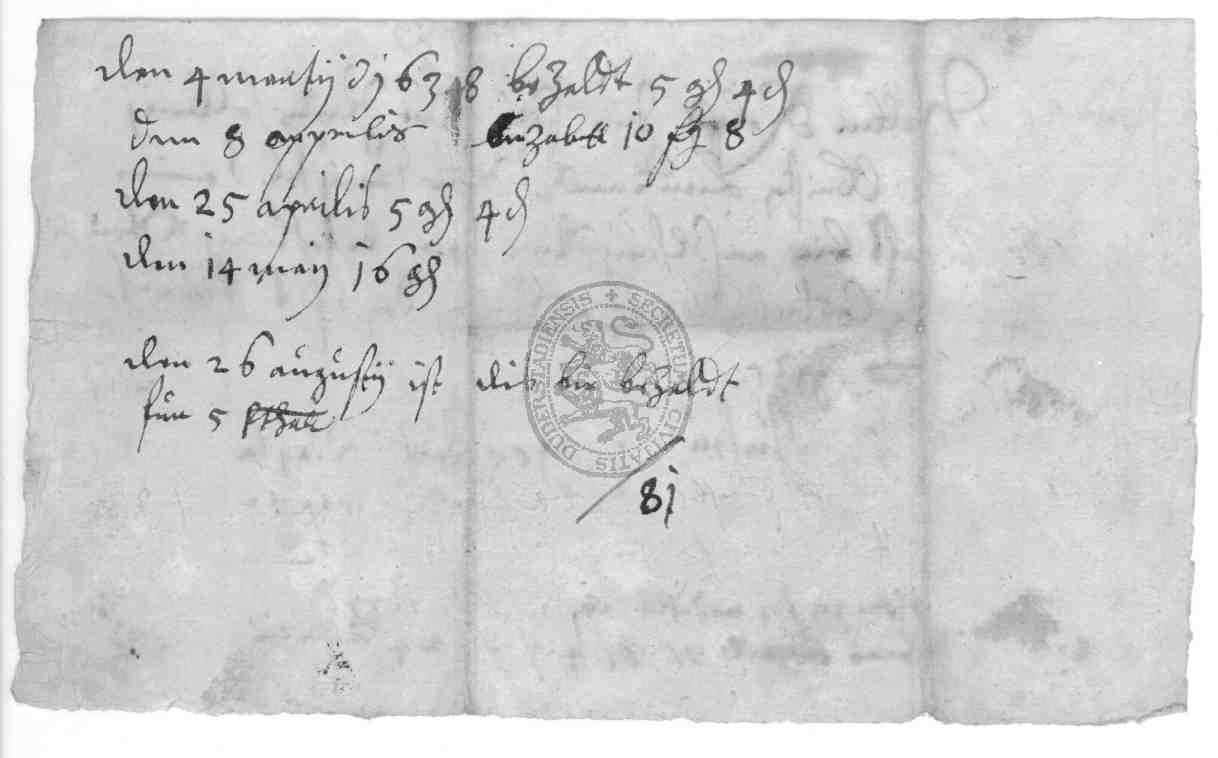 den 4 martij
bezaldt 5 gl 4 d
den 8 apprilis
10
8
den 25 aprilis 5 gl 4 d
den 14 maij 16 gl
den 26 augustij ist die bir bezaldt
für 5 thall
SECRETUM CIVITATIS DUDERSTADIENSIS
8j